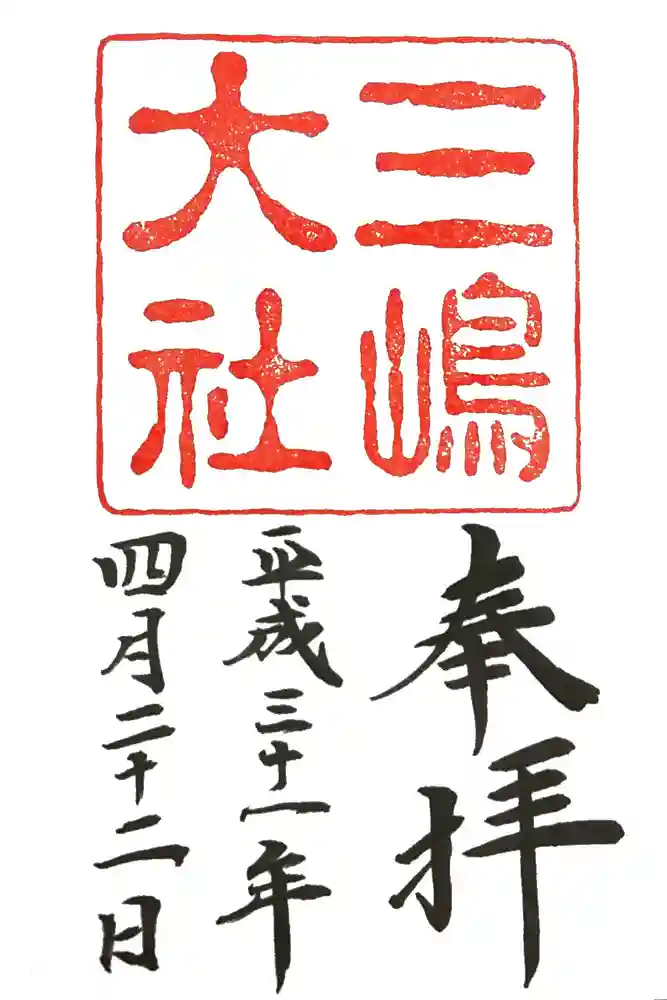 三嶋
大社
奉拝
平成三十一年
四月二十二日